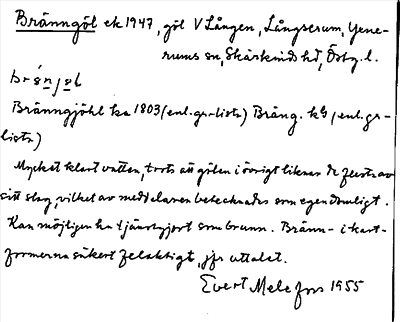 Bränngöl ek 1947, göl V Lången, Långserum, Gene-
rums sn, Skärkinds hd, Östg. l.
Bränngjöhl ka 1803 (enl. gr-lista) Bräng. kb (enl. gr-
lista)
Mycket klart vatten, trots att gölen i övrigt liknar de flesta av
sitt slag, vilket av meddelaren betecknades som egendomligt.
Kan möjligen ha tjänstgjort som brunn. Bränn- i kart-
formerna säkert felaktigt, jfr uttalet.
Evert Melefors 1955